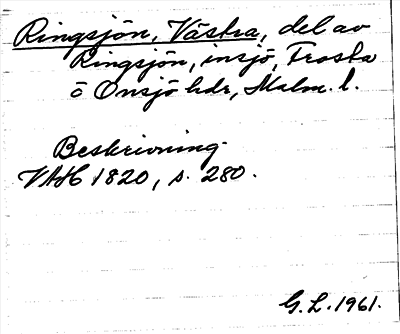 Ringsjön, Västra, del av
Ringsjön, insjö, Frosta
o Onsjö hdr, Malm. l.
Beskrivning
VAH 1820, s. 280.
G.L. 1961.